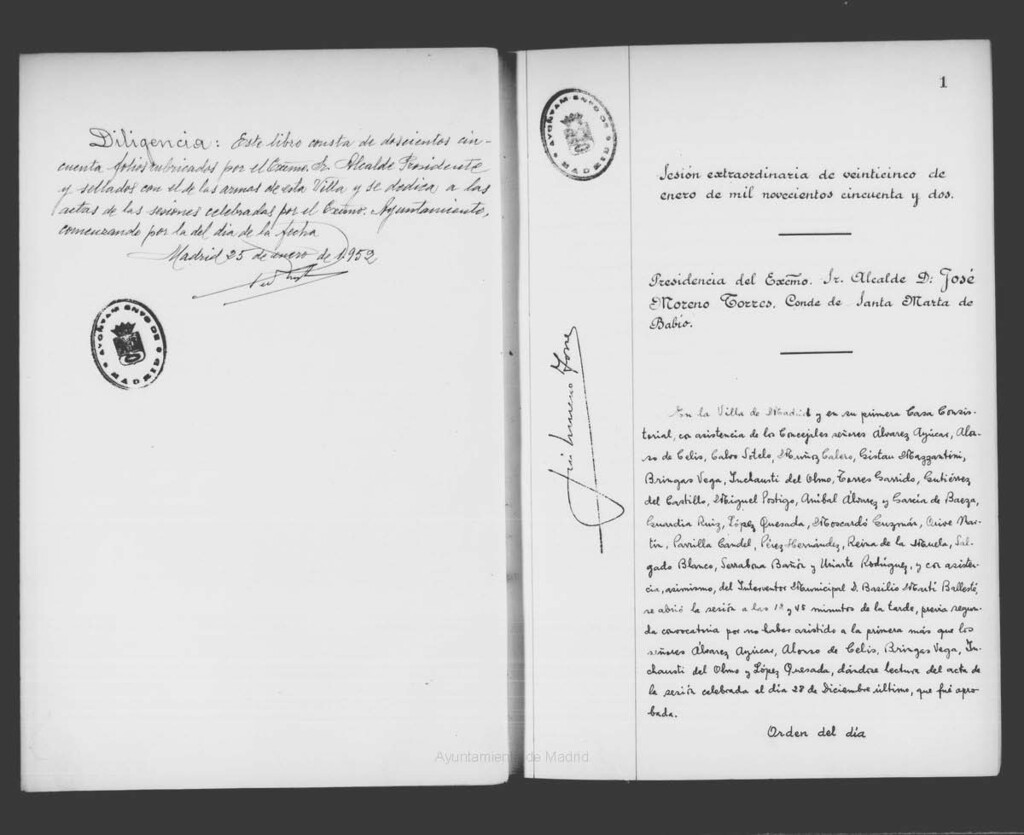 Diligencia: Este libro consta de doscientos cin-
cuenta folios rubricados por el Excmo. Sr. Alcalde Presidente
y sellados con el de las armas de esta Villa y se dedica a las
actas de las sesiones celebradas por el Excmo. Ayuntamiento,
comenzando por la del dia de la fecha
Madrid 25 de enero de 1.952
AYUNTAMIENTO DE MADRID
AYUNTAMIENTO DE MADRID
1
Sesión extraordinaria de veinticinco de
enero de mil novecientos cincuenta y dos.
Presidencia del Excmo. Sr. Alcalde D. José
Moreno Torres, Conde de Santa Marta de
Babío.
José Moreno Torres
En la Villa de Madrid y en su primera Casa Consis-
torial, con asistencia de los Concejales señores Álvarez Ayúcar, Alon-
so de Celis, Calvo Sotelo, Muñoz Calero, Gistau Mazzantini,
Bringas Vega, Inchausti del Olmo, Torres Garrido, Gutiérrez
del Castillo, Miguel Postigo, Anibal Álvarez y García de Baeza,
Guardia Ruiz, López Quesada, Moscardó Guzmán, Orive Mar-
tín, Parrilla Candel, Pérez Hernández, Reina de la Muela, Sal-
gado Blanco, Serrabona Bañón y Uriarte Rodríguez, y con asisten-
cia, asimismo, del Interventor Municipal D. Basilio Martí Ballesté,
se abrió la sesión a las y 45 minutos de la tarde, previa segun-
da convocatoria por no haber asistido a la primera más que los
señores Álvarez Ayúcar, Alonso de Celis, Bringas Vega, In-
chausti del Olmo y López Quesada, dándose lectura del acta de
la sesión celebrada el día 28 de Diciembre último, que fué apro-
bada.
Orden del día
Ayuntamiento de Madrid